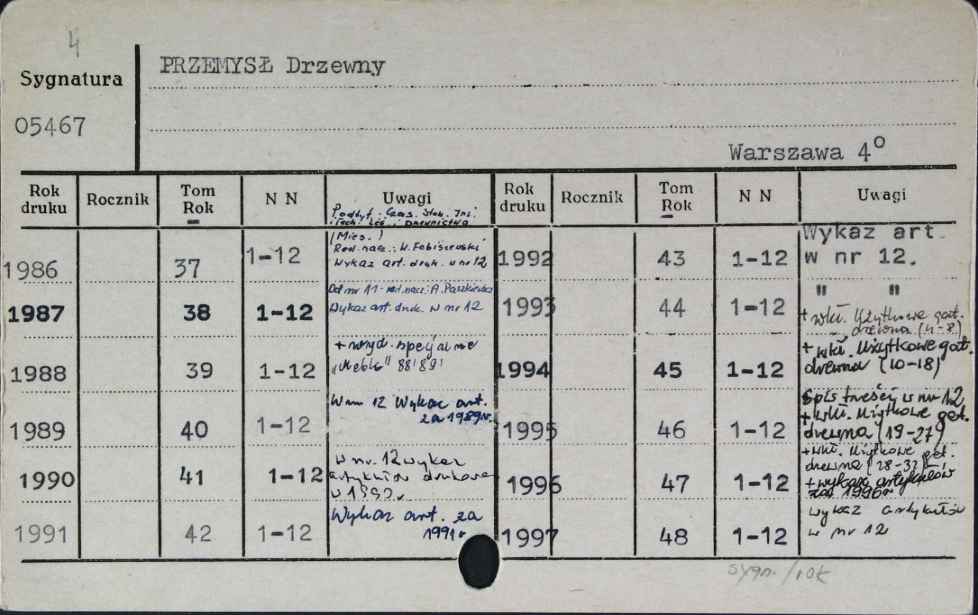 4
Sygnatura
PRZEMYSŁ Drzewny
05467
Warszawa 4°
Rok druku Rocznik Tom Rok N N Uwagi Rok druku Rocznik Tom Rok N N Uwagi
Podtyt.: Czas. Stow. Inż.
i Tech. Leś. i Drzewnictwa
1986 37 1-12 (Mies.)
Red. nacz.: W. Fabiszewski
Wykaz art. druk. w nr 12
1987 38 1-12 Od nr 11 - red. nacz.: A. Paszkiewicz
Wykaz art. druk. w nr 12
1988 39 1-12 + wyd. specjalne
"Meble" 88 i 89
1989 40 1-12 W nr 12 Wykaz art.
za 1989 r.
1990 41 1-12 w nr. 12 wykaz
artykułów drukowa
w 1990 r.
1991 42 1-12 Wykaz art. za
1991 r
1992 43 1-12 Wykaz art.
w nr 12.
1993 44 1-12 " "
+ wkł. Użytkowe gat.
drewna (4-8)
1994 45 1-12 + wkł. Użytkowe gat.
drewna (10-18)
1995 46 1-12 Spis treści w nr 12
+ wkł. Użytkowe gat.
drewna (19-27)
1996 47 1-12 + wkł. Użytkowe gat.
drewna
+ wykaz artykułów
za 1996 r.
1997 48 1-12 wykaz artykułów
w nr 12
sygn. / rok